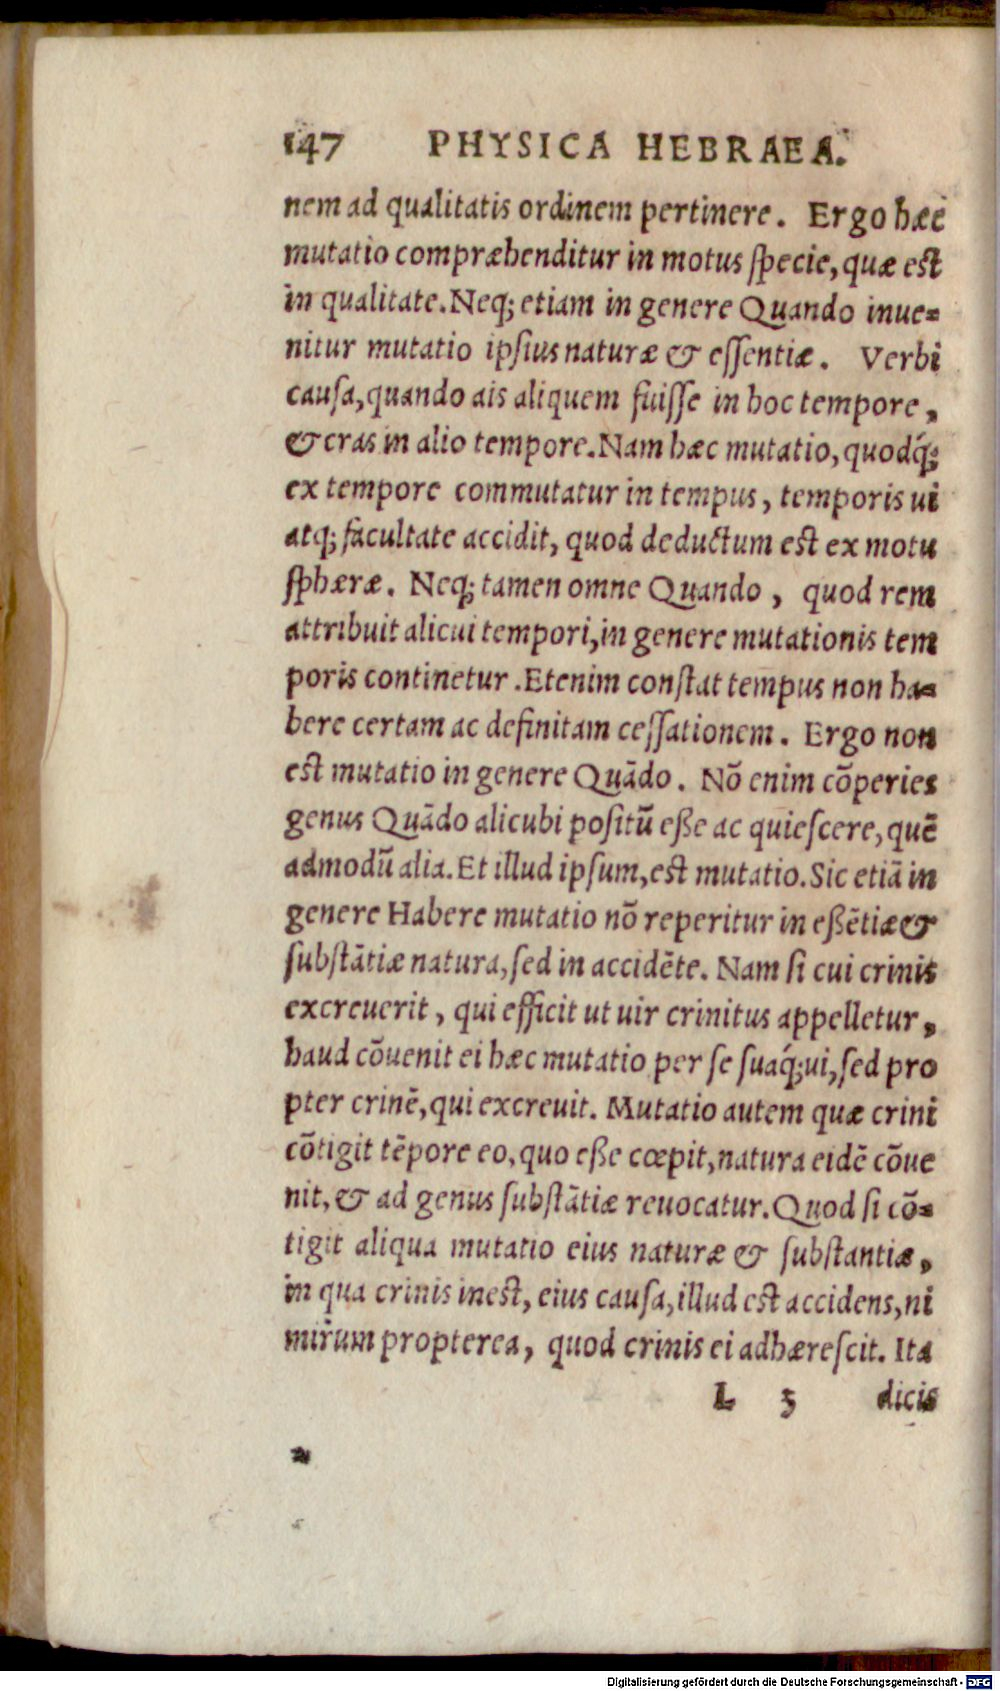 147 PHYSICA HEBRAEA.
nem ad qualitatis ordinem pertinere. Ergo hæc
mutatio compræhenditur in motus ſpecie, quæ est
in qualitate. Neq; etiam in genere Quando inue-
nitur mutatio ipſius naturæ & eſſentiæ. Verbi
cauſa, quando ais aliquem fuiſſe in hoc tempore,
& cras in alio tempore. Nam hæc mutatio, quodq́;
ex tempore commutatur in tempus, temporis ui
atq; facultate accidit, quod deductum est ex motu
ſphæræ. Neq; tamen omne Quando, quod rem
attribuit alicui tempori, in genere mutationis tem
poris continetur. Etenim conſtat tempus non ha-
bere certam ac definitam ceſſationem. Ergo non
est mutatio in genere Quādo. Nō enim cōperies
genus Quādo alicubi poſitū eße ac quieſcere, quē
admodū alia. Et illud ipſum, est mutatio. Sic etiā in
genere Habere mutatio nō reperitur in eßētiæ &
ſubſtātiæ natura, ſed in accidēte. Nam ſi cui crinis
excreuerit, qui efficit ut uir crinitus appelletur,
haud cōuenit ei hæc mutatio per ſe ſuaq́; ui, ſed pro
pter crinē, qui excreuit. Mutatio autem quæ crini
cōtigit tēpore eo, quo eße cœpit, natura eidē cōue
nit, & ad genus ſubſtātiæ reuocatur. Quod ſi cō-
tigit aliqua mutatio eius naturæ & ſubſtantiæ,
in qua crinis inest, eius cauſa, illud est accidens, ni
mirum propterea, quod crinis ei adhæreſcit. Ita
L 3 dicis
Digitalisierung gefördert durch die Deutsche Forschungsgemeinschaft - DFG